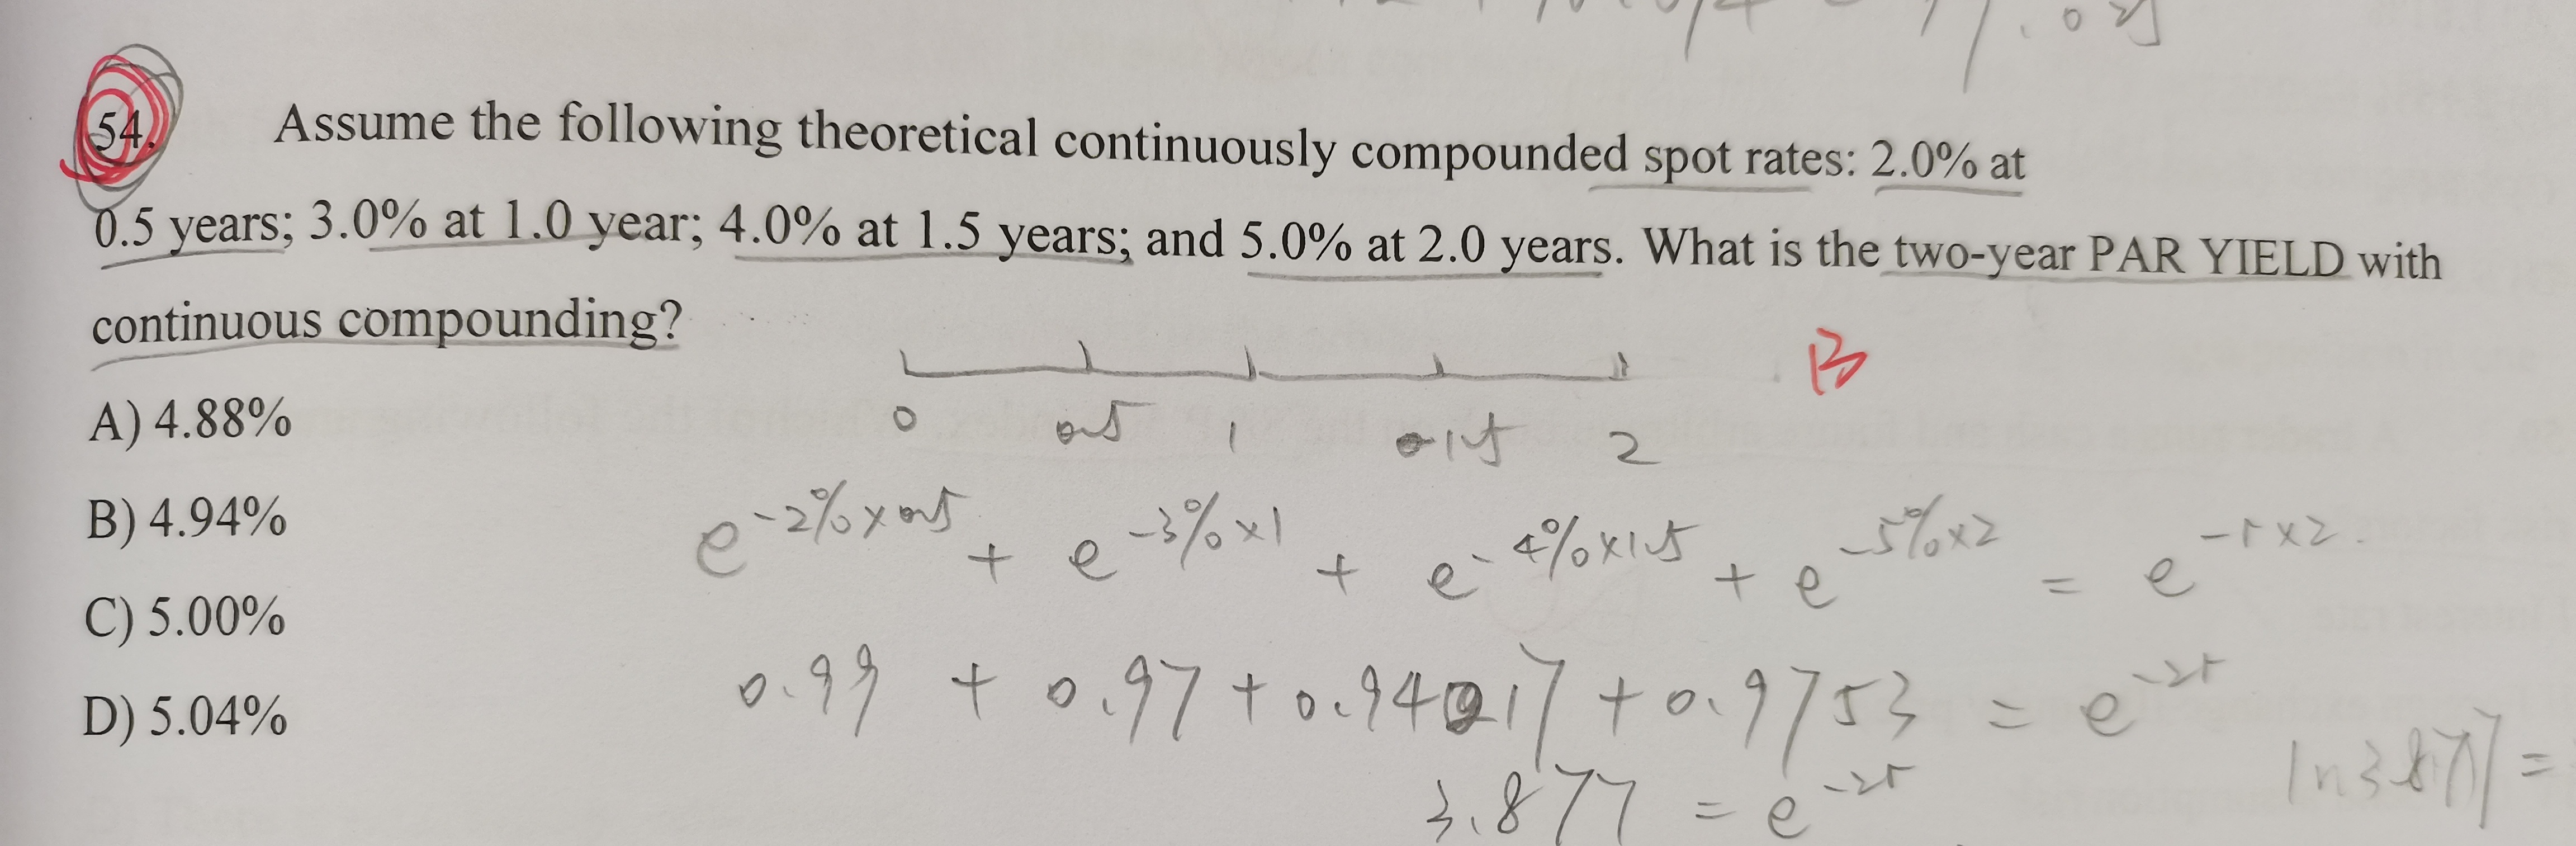 54. Assume the following theoretical continuously compounded spot rates: 2.0% at
0.5 years; 3.0% at 1.0 year; 4.0% at 1.5 years; and 5.0% at 2.0 years. What is the two-year PAR YIELD with
continuous compounding?
B
A) 4.88%
0 0.5 1 1.5 2
B) 4.94%
e^-2%×0.5 + e^-3%×1 + e^-4%×1.5 + e^-5%×2 = e^-r×2.
C) 5.00%
D) 5.04%
0.99 + 0.97 + 0.94017 + 0.9753 = e^-2r
3.877 = e^-2r